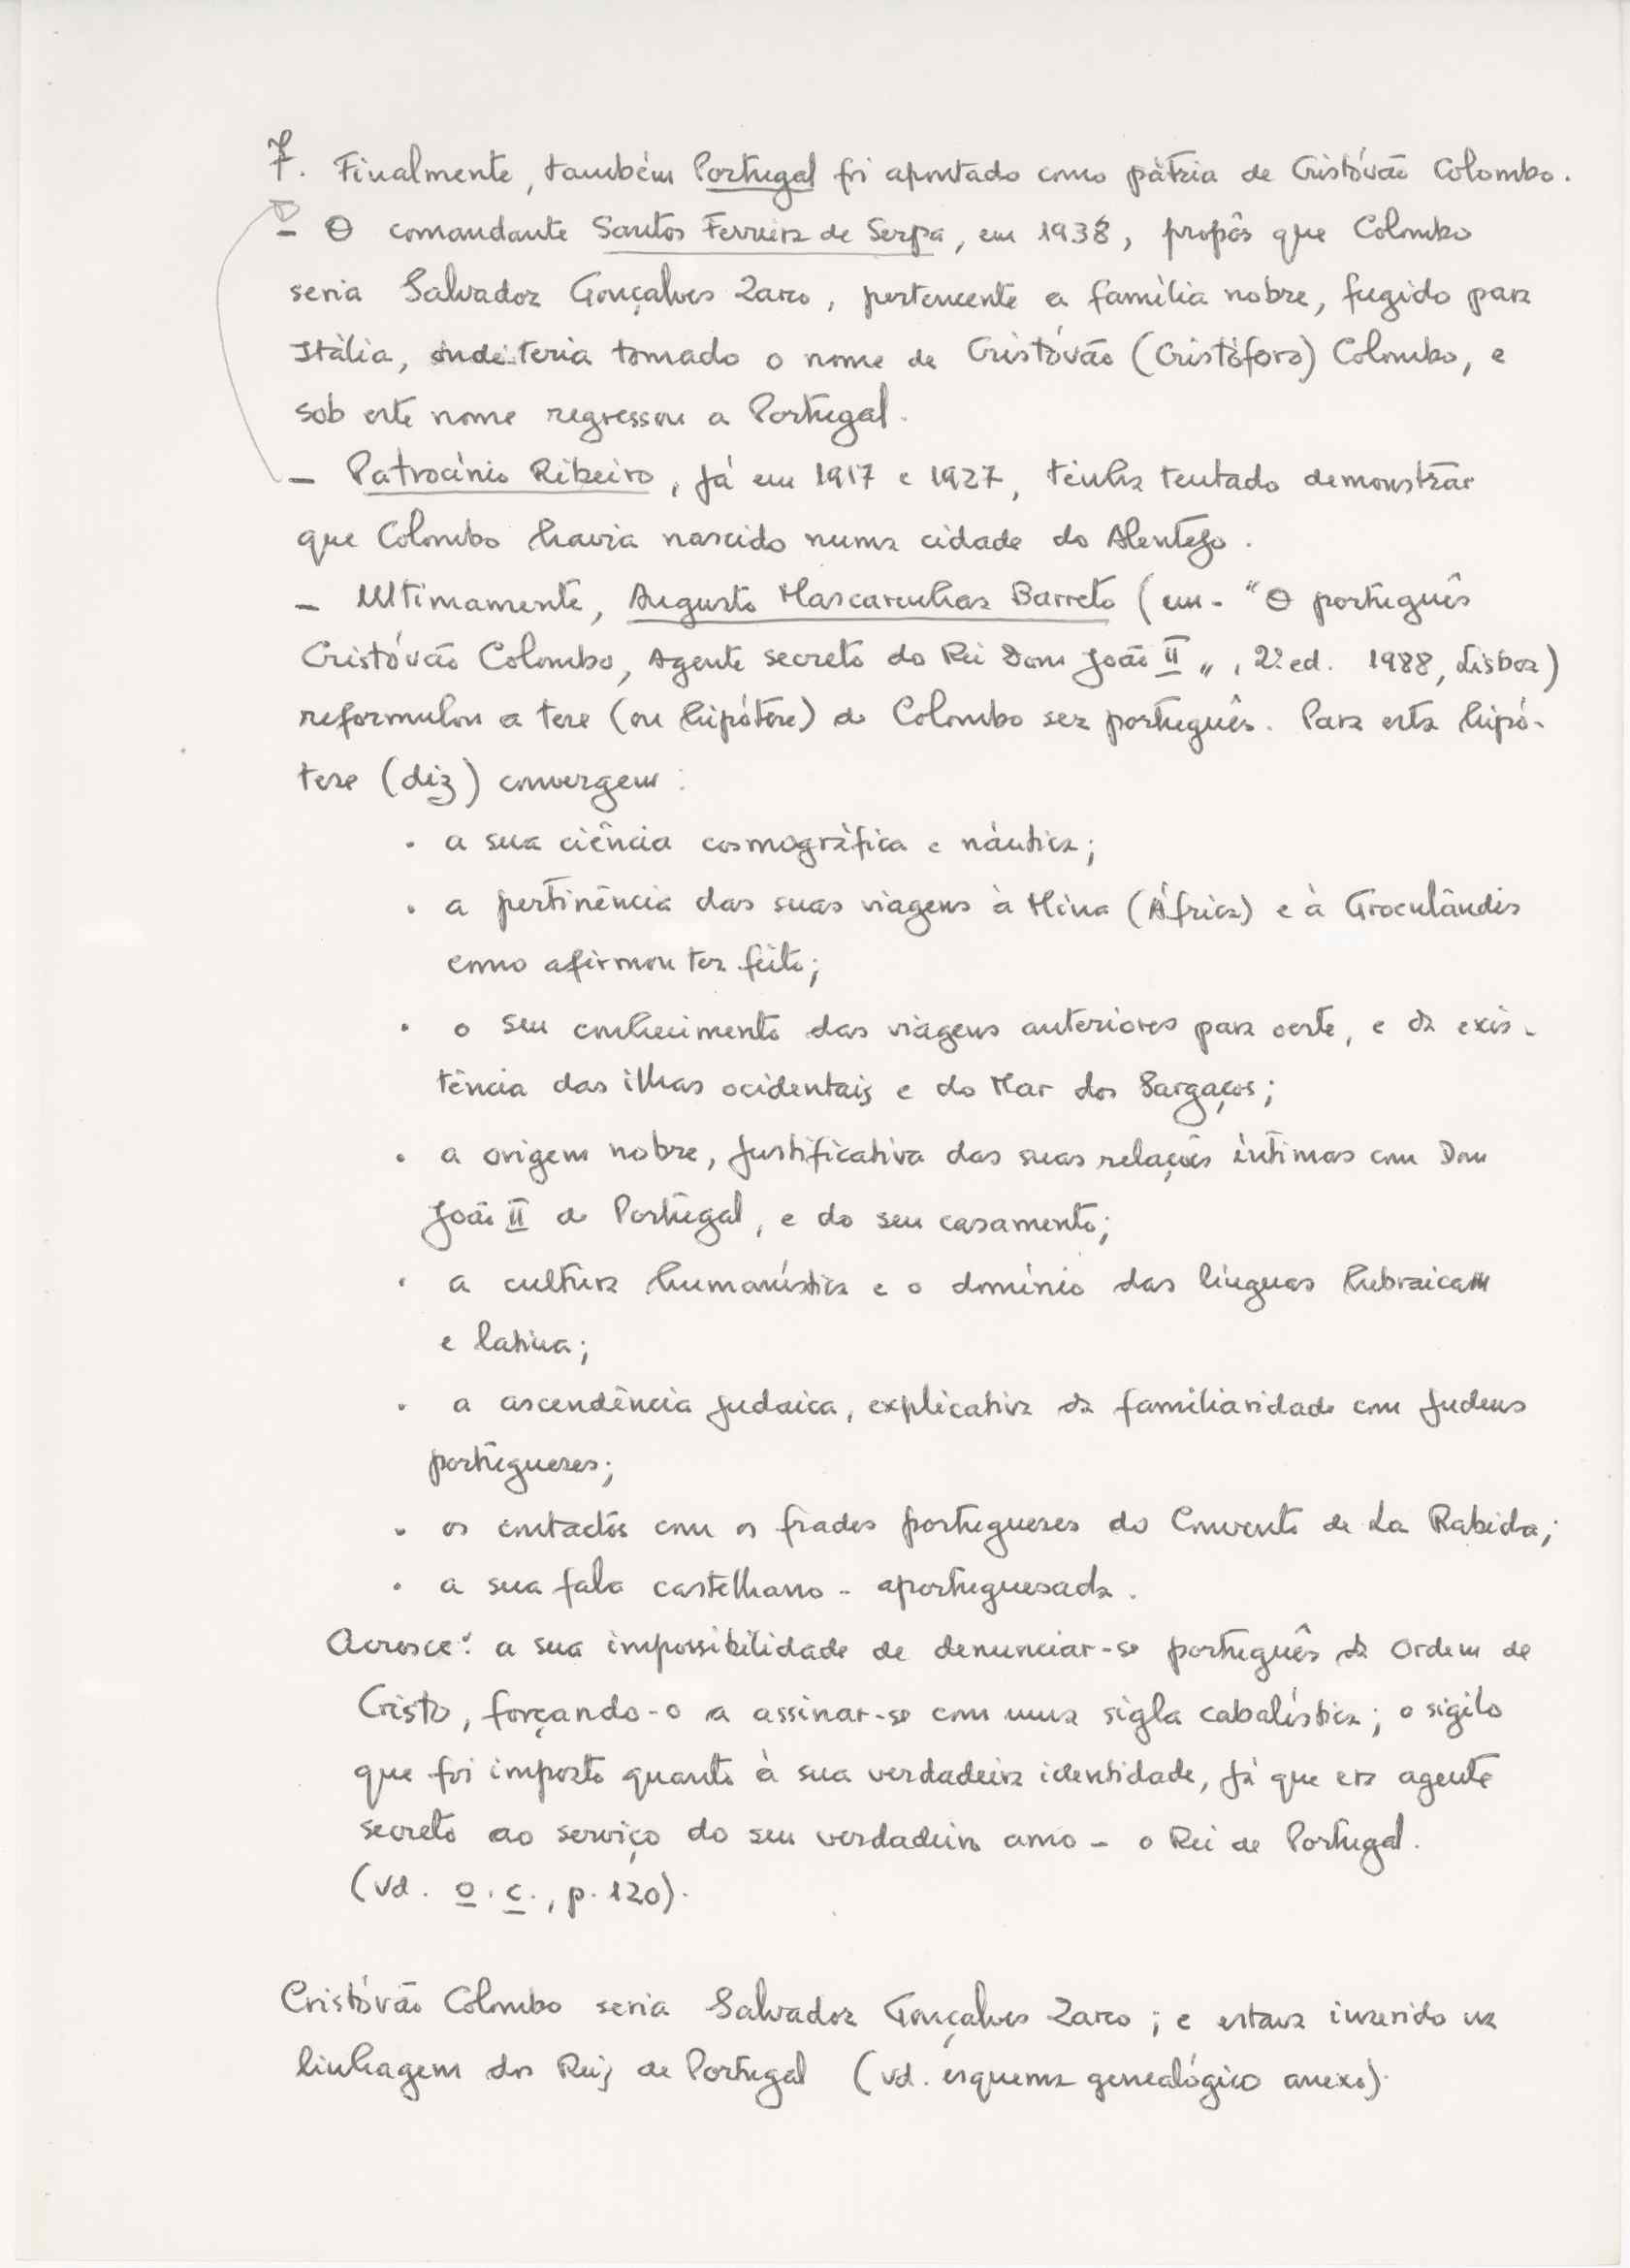 7. Finalmente, também Portugal foi apontado como pátria de Cristóvão Colombo.
- O comandante Santos Ferreira de Serpa, em 1938, propôs que Colombo
seria Salvador Gonçalves Zarco, pertencente a família nobre, fugido para
Itália, onde teria tomado o nome de Cristóvão (Cristóforo) Colombo, e
sob este nome regressou a Portugal.
- Patrocínio Ribeiro, já em 1917 e 1927, tinha tentado demonstrar
que Colombo havia nascido numa cidade do Alentejo.
- Ultimamente, Augusto Mascarenhas Barreto (em - "O português
Cristóvão Colombo, Agente secreto do Rei Dom João II", 2ª ed. 1988, Lisboa)
reformulou a tese (ou hipótese) de Colombo ser português. Para esta hipó-
tese (diz) convergem:
. a sua ciência cosmográfica e náutica;
. a pertinência das suas viagens à Mina (África) e à Groenlândia
como afirmou ter feito;
. o seu conhecimento das viagens anteriores para oeste, e da exis-
tência das ilhas ocidentais e do Mar dos Sargaços;
. a origem nobre, justificativa das suas relações íntimas com Dom
João II de Portugal, e do seu casamento;
. a cultura humanística e o domínio das línguas hebraica
e latina;
. a ascendência judaica, explicativa da familiaridade com judeus
portugueses;
. os contactos com os frades portugueses do Convento de La Rabida;
. a sua fala castelhano-aportuguesada.
Acresce: a sua impossibilidade de denunciar-se português da Ordem de
Cristo, forçando-o a assinar-se com uma sigla cabalística; o sigilo
que foi imposto quanto à sua verdadeira identidade, já que era agente
secreto ao serviço do seu verdadeiro amo - o Rei de Portugal.
(vd. o. c., p. 120).
Cristóvão Colombo seria Salvador Gonçalves Zarco; e estava inserido na
linhagem dos Reis de Portugal (vd. esquema genealógico anexo).